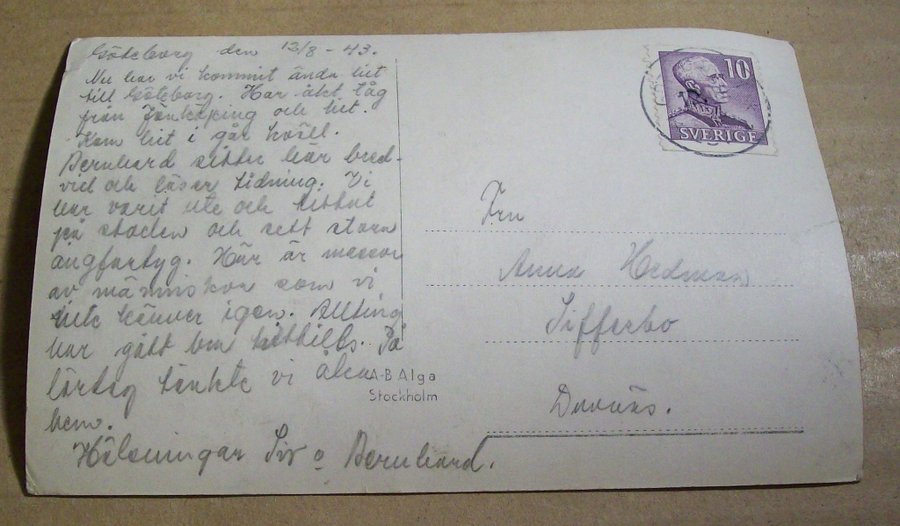 Göteborg den 12/8 - 43.
Nu har vi kommit ända hit
till Göteborg. Har åkt tåg
från Jönköping och hit.
Kom hit i går kväll.
Bernhard sitter här bred-
vid och läser tidning. Vi
har varit ute och tittat
på staden och sett stora
ångfartyg. Här är massor
av människor som vi
inte känner igen. Allting
har gått bra hittills. På
lördag tänkte vi åka
hem.
Hälsningar Siv o Bernhard.
10
SVERIGE
Fru
Anna Hedman
Sifferbo
Duvnäs.
A-B Alga
Stockholm